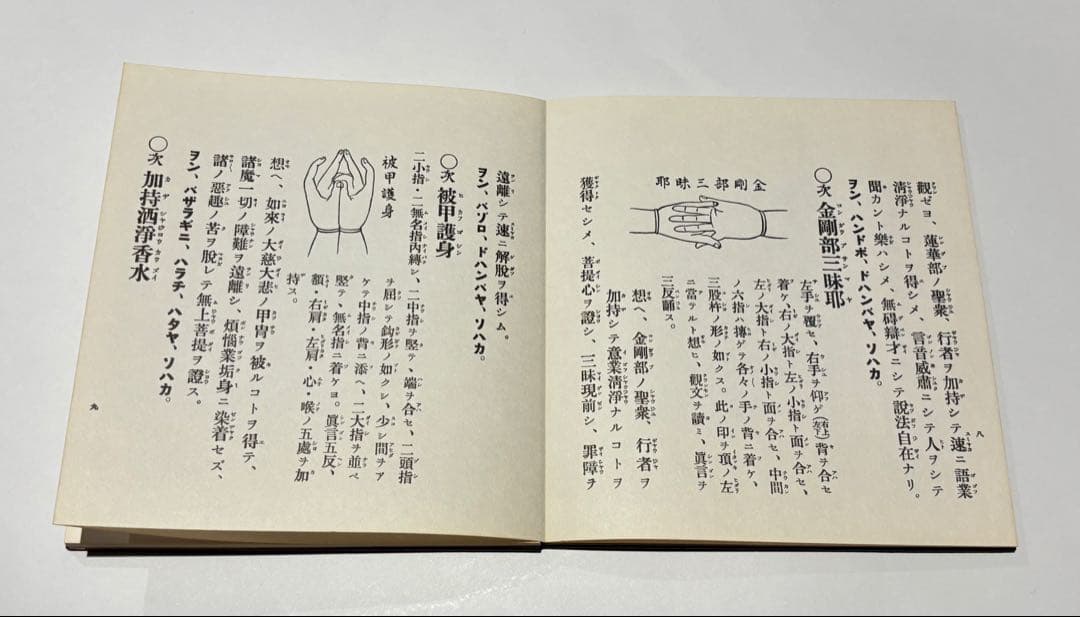 觀ゼヨ、蓮華部ノ聖衆、行者ヲ加持シテ速ニ語業
清淨ナルコトヲ得シメ、言音威肅ニシテ人ヲシテ
聞カント樂ハシメ、無碍辯才ニシテ說法自在ナリ。
ヲン、ハンドボ、ドハンベヤ、ソハカ。
○次 金剛部三昧耶
左手ヲ覆セ、右手ヲ仰ゲ(右上左下)背ヲ合セ
着ケ、右ノ大指ト左ノ小指ト面ヲ合セ、
左ノ大指ト右ノ小指ト面ヲ合セ、中間
ノ六指ハ摶ゲテ各々ノ手ノ背ニ着ケ、
三股杵ノ形ノ如クス。此ノ印ヲ頂ノ左
ニ當テルト想ヒ、觀文ヲ讀ミ、眞言ヲ
三反誦ス。
金剛部三昧耶
想ヘ、金剛部ノ聖衆、行者ヲ
加持シテ意業淸淨ナルコトヲ
獲得セシメ、菩提心ヲ證シ、三昧現前シ、罪障ヲ
八
遠離シテ速ニ解脫ヲ得シム。
ヲン、バゾロ、ドハンベヤ、ソハカ。
○次 被甲護身
二小指・二無名指內縛シ、二中指ヲ竪テ、端ヲ合セ、二頭指
ヲ屈シテ鈎形ノ如クシ、少シ間ヲア
ケテ中指ノ背ニ添ヘ、二大指ヲ並ベ
竪テ、無名指ニ着ケヨ。眞言五反、
額・右肩・左肩・心・喉ノ五處ヲ加
持ス。
被甲護身
想ヘ、如來ノ大慈大悲ノ甲冑ヲ被ルコトヲ得テ、
諸魔一切ノ障難ヲ遠離シ、煩惱業垢身ニ染着セズ、
諸ノ惡趣ノ苦ヲ脫レテ無上菩提ヲ證ス。
ヲン、バザラギニ、ハラチ、ハタヤ、ソハカ。
○次 加持洒淨香水
九